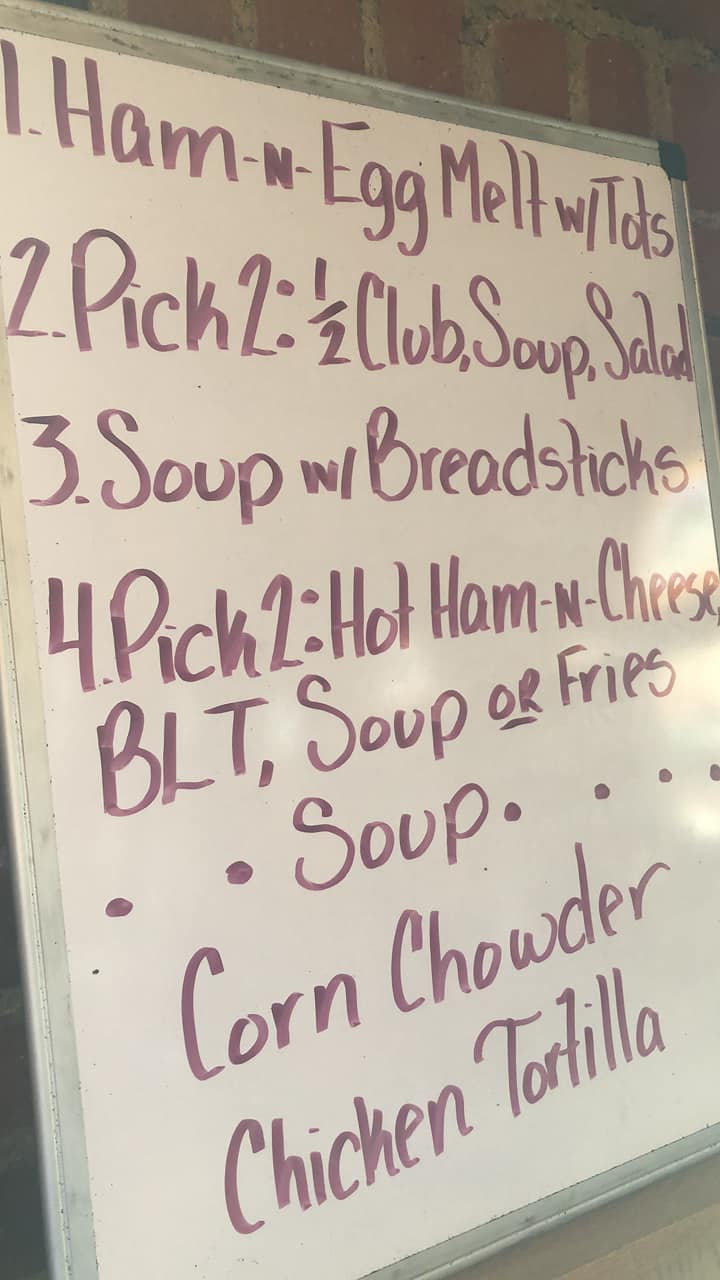 1. Ham-N-Egg Melt w/Tots
2. Pick 2: 1/2 Club, Soup, Salad
3. Soup w/ Breadsticks
4. Pick 2: Hot Ham-N-Cheese,
BLT, Soup OR Fries
. . Soup. . . .
Corn Chowder
Chicken Tortilla